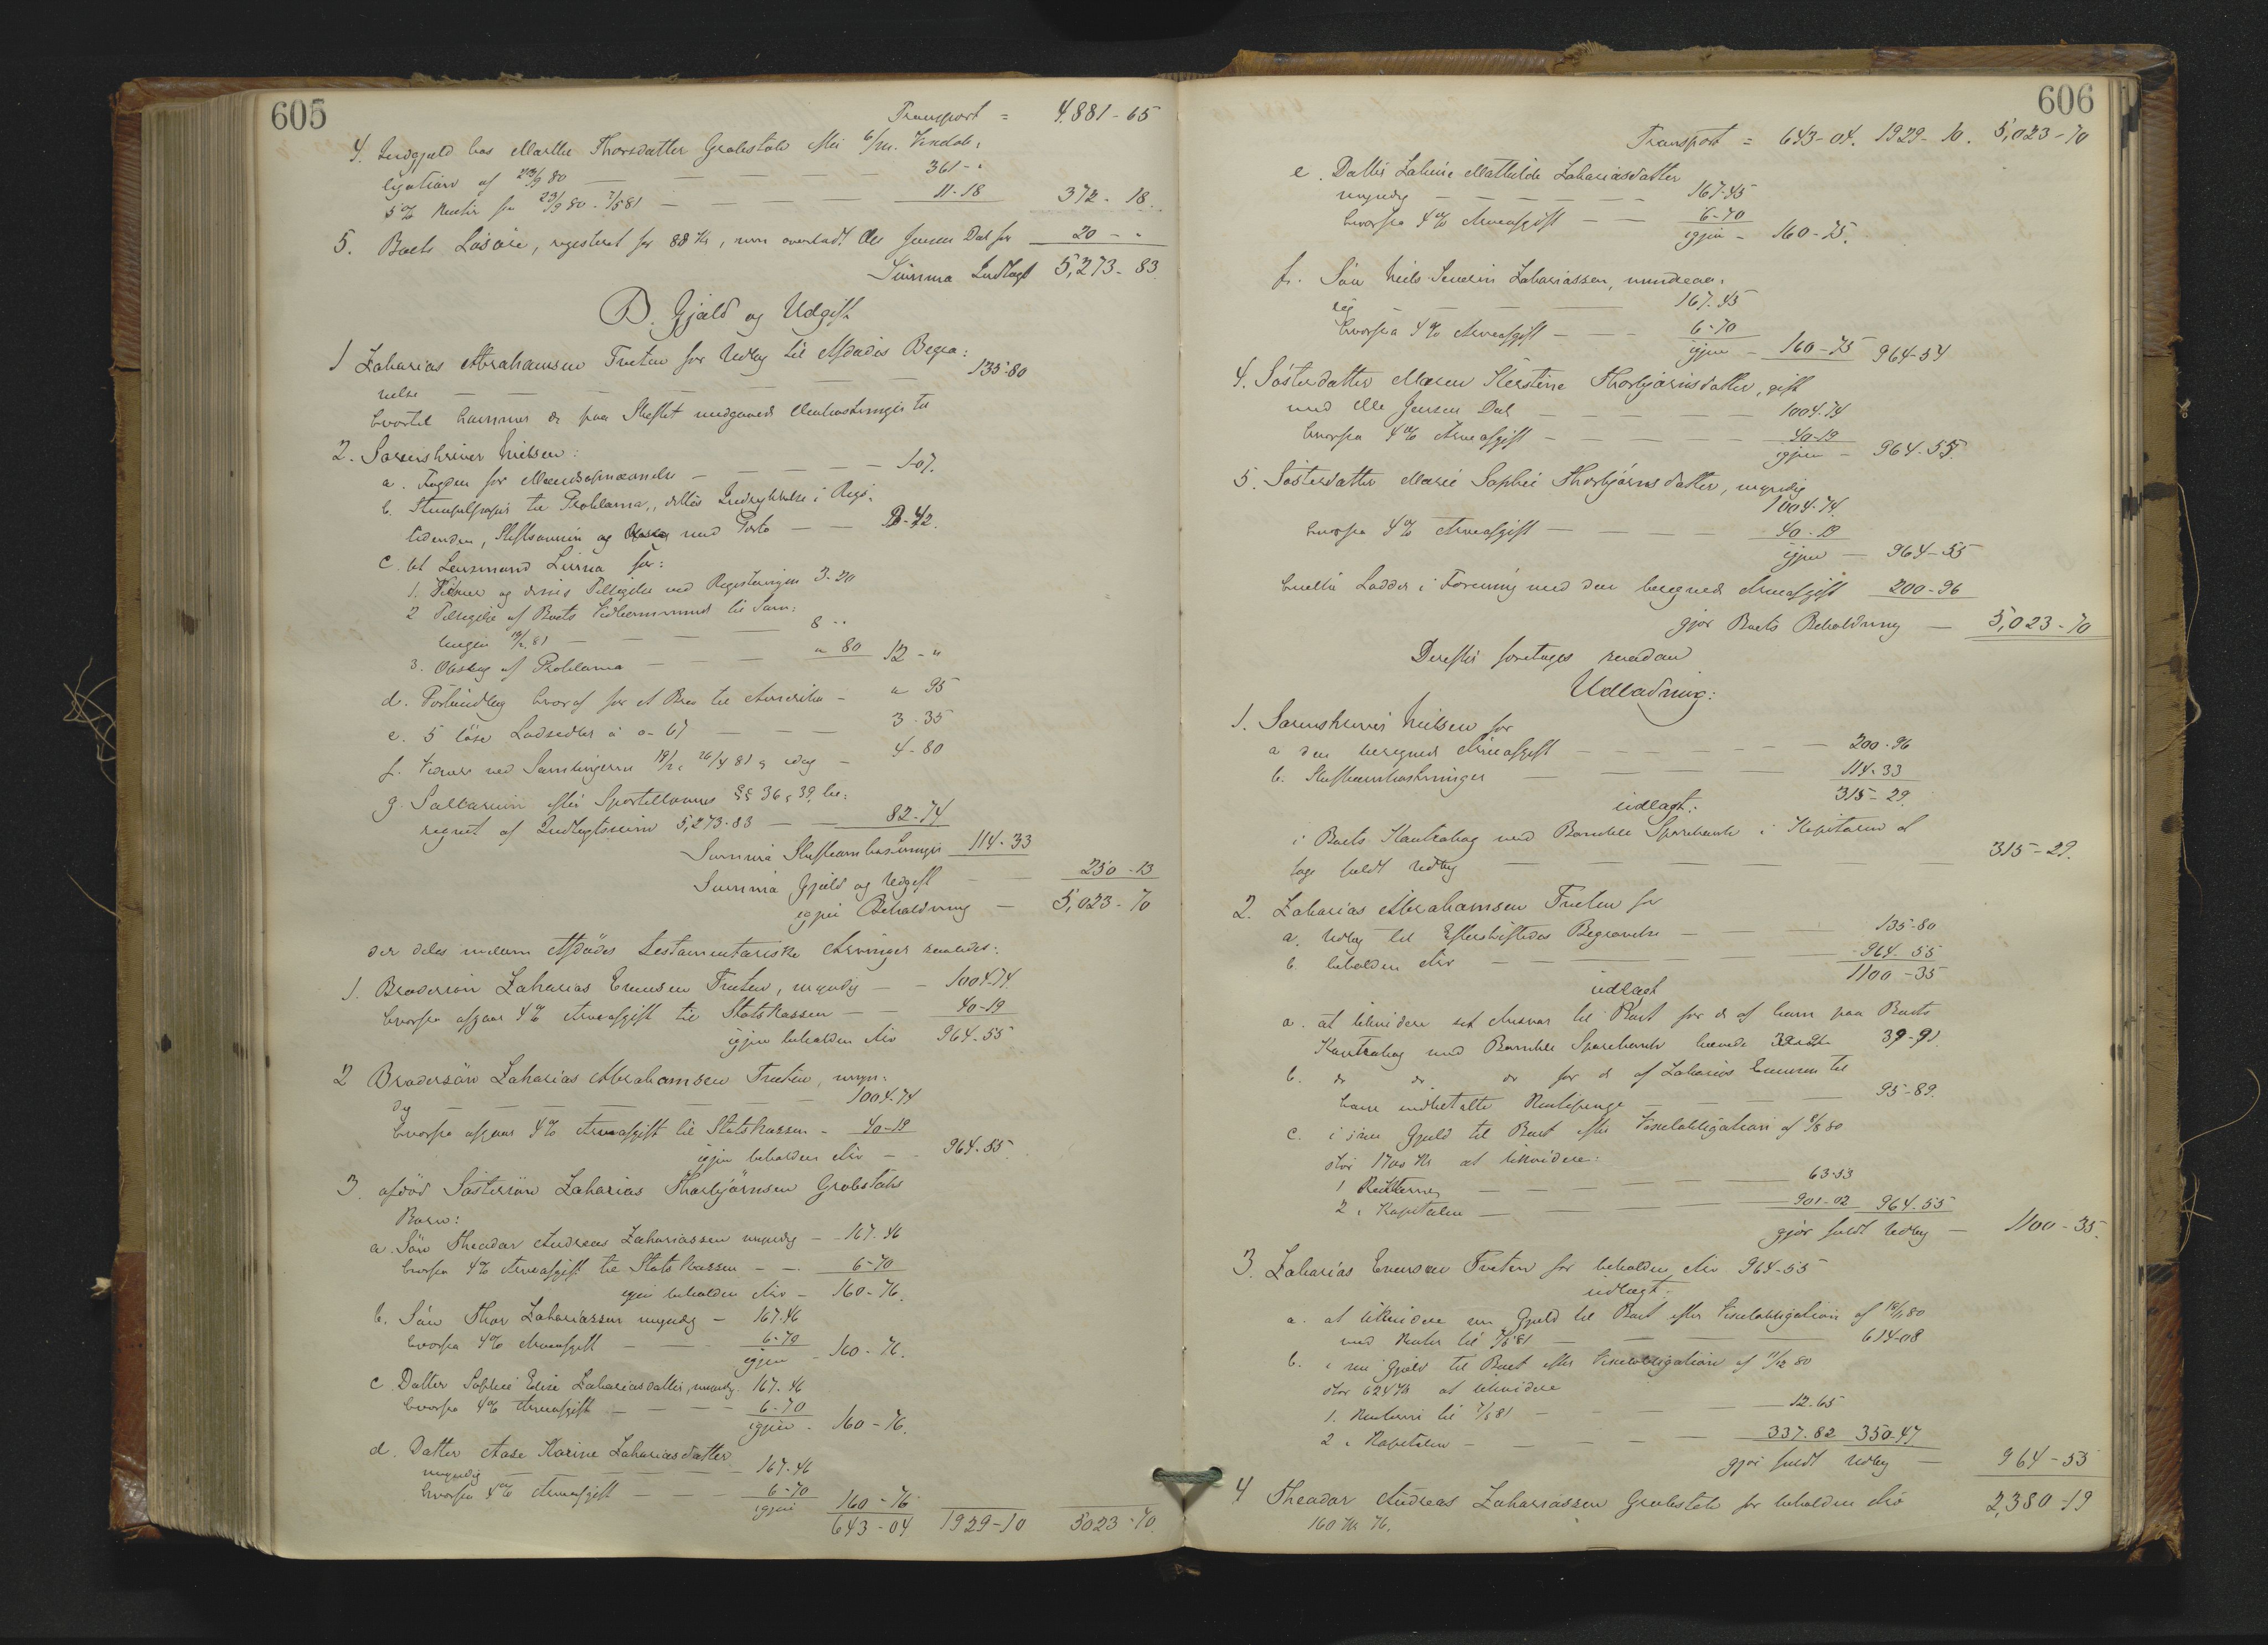 605
Transport = 4.881-65
4. Indgjæld hos Marthe Thorsdatter Grobstok efter Vexelob:
ligation af 23/9 80 — — — — 361 - "
5% Renter fra 23/9 80 - 7/5 81 — — — — 11-18 372-18.
5. Boets Løsøre, registeret for 88 Kr, men overladt Ole Jensen Dal for 20 - "
Summa Indtægt 5,273-83
D. Gjæld og Udgift
1 Zakarias Abrahamsen Tveten for Udlæg til Afdødes Begra:
velse — — — — — — 135-80
hvortil kommer de paa Skiftet medgaaede Omkostninger til
2. Sorenskriver Nielsen:
a. Fogden for Mændsopnævnelse — — — — 1-07.
b. Stempelpapir til Proklama, dettes Indrykkelse i Rigs-
tidenden, og med Porto — — 8-42.
c. til Lensmand for:
1. Vidner og dennes Tilsigelse ved Registeringen 3-20
2 Tilsigelse af Boets Vedkommende til Sam:
lingen 19/2 81 — — — — 8 "
3. Opslag af Proklama — — — " 80 12 - "
d. Portoudlæg hvoraf for et Brev til Amerika — " 95
e. 5 løse Lodsedler à 0-67 — — — 3-35
f. Vidner ved Samlingerne 19/2, 26/4 81 & idag — 4-80
g. Sallarium efter Sportellovens §§ 36 & 39, be:
regnet af Indtægtssum 5,273-83 — — 82-74
Summa Skifteomkostninger 114-33
Summa Gjæld og Udgift — 250-13
igjen Beholdning — 5,023-70
der deles mellem Afdødes Testamentariske Arvinger saaledes:
1. Brodersøn Zakarias Evensen Tveten, myndig — 1004-74.
hvorfra afgaar 4% Arveafgift til Statskassen — — 40-19
igjen beholden Arv 964-55
2 Brodersøn Zakarias Abrahamsen Tveten, myn:
dig — — — — — — 1004-74
hvorfra afgaar 4% Arveafgift til Statskassen - 40-19
igjen beholden Arv — - 964-55.
3. afdød Søstersøn Zakarias Thorbjørnsen Grobstoks
Børn:
a. Søn Theodor Andreas Zakariassen myndig — 167-46
hvorfra 4% Arveafgift til Statskassen - -. 6-70
igjen beholden Arv - 160-76.
b. Søn Thor Zakariassen myndig — 167-46
hvorfra 4% Arveafgift — — 6-70
igjen - 160-76.
c. Datter Sophie Elise Zakariasdatter, myndig. 167-46
hvorfra 4% Arveafgift — — — 6-70
igjen - 160-76.
d. Datter Aase Karine Zakariasdatter
myndig — — — — — 167-46
hvorfra 4% Arveafgift — — — 6-70
igjen 160-76
643-04 1929-10 5023-70.
606
Transport = 643-04. 1929-10. 5,023-70
e. Datter Mathilde Zakariasdatter
myndig — — — — — 167-45
hvorfra 4% Arveafgift — — 6-70
igjen - 160-75.
f. Søn Niels Severin Zakariassen, mindreaa:
rig — — — — — 167-45
hvorfra 4% Arveafgift — — — 6-70
igjen - 160-75 964-54
4. Søsterdatter Maren Kerstine Thorbjørnsdatter, gift
med Ole Jensen Dal — — — — 1004-74
hvorfra 4% Arveafgift — — — — 40-19
igjen - 964-55.
5. Søsterdatter Marie Sophie Thorbjørnsdatter, myndig
1004-74.
hvorfra 4% Arveafgift — — — — 40-19
igjen — 964-55
hvilke Lodder i Forening med den beregnede Arveafgift 200-96
gjør Boets Beholdning — 5,023-70
Derefter foretages saadan
Udlodning:
1. Sorenskriver Nielsen for
a den beregnede Arveafgift — — — — — 200-96
b. Skifteomkostninger — — — — 114-33
315-29.
udlagt:
i Boets Kontrabog med Bamble Sparebank i Kapitalen at
tage fuldt Udlæg — — — — — 315-29.
2. Zakarias Abrahamsen Tveten for
a. Udlæg til Efterskiftedes Begravelse — — — 135-80
b. beholden Arv — — — — — 964-55
1100-35
udlagt
a. at likvidere sit Ansvar til Boet for de af ham paa Boets
Kontrabog med Bamble Sparebank hævede 39-91.
b. do do do for de af Zakarias Evensen til
ham indbetalte Rentepenge — — — — 95-89.
c. i sin Gjæld til Boet efter Vexelobligation af 8/8 80
stor 1700 Kr at likvidere:
1 Renterne — — — — — 63-53
2 i Kapitalen — — — — 901-02 964-55
gjør fuldt Udlæg — 1100-35.
3. Zakarias Evensen Tveten for beholden Arv 964-55
udlagt:
a. at likvidere sin Gjæld til Boet efter Vexelobligation af 18/1 80
med Renter til 7/5 81 — — — — 614-08
b. i sin Gjæld til Boet efter Vexelobligation af 11/12 80
stor 624 Kr at likvidere
1. Renterne til 7/5 81 — — — — 12-65
2 i Kapitalen — — — — 337-82 350-47
gjør fuldt Udlæg — 964-55
4 Theodor Andreas Zakariassen Grobstok for beholden Arv 2,380-19
160 Kr 76.